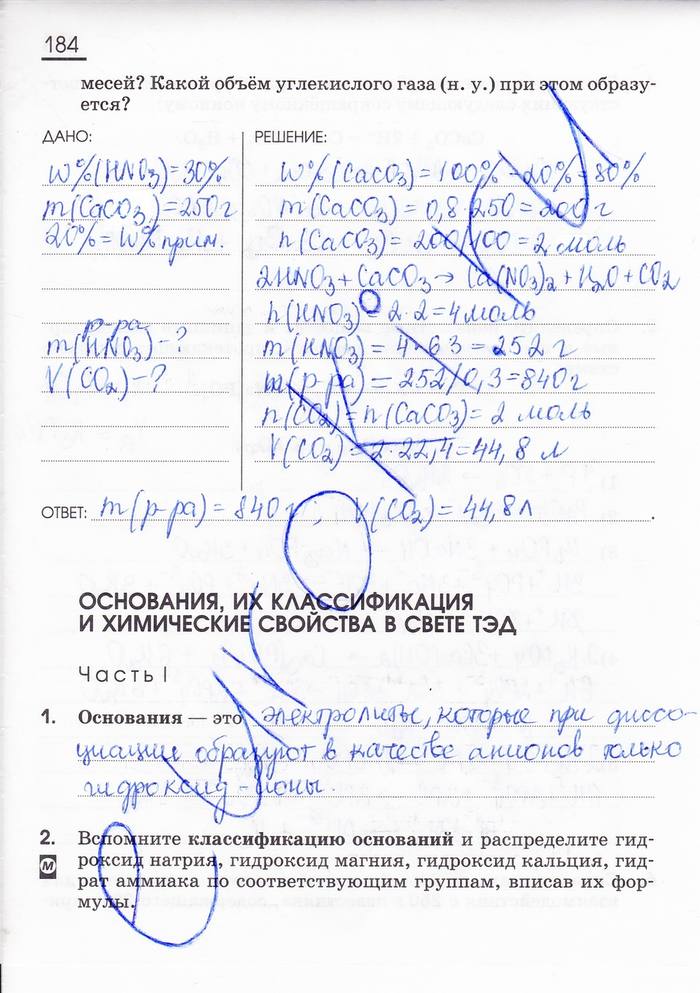 184
месей? Какой объём углекислого газа (н. у.) при этом образу-
ется?
ДАНО:
W%(HNO₃)=30%
m(CaCO₃)=250г
20%=W% прим.
m(HNO₃)-?
р-ра
V(CO₂)-?
РЕШЕНИЕ:
W%(CaCO₃)=100%-20%=80%
m(CaCO₃)=0,8·250=200г
n(CaCO₃)=200/100=2 моль
2HNO₃+CaCO₃→Ca(NO₃)₂+H₂O+CO₂
n(HNO₃)=2·2=4моль
m(HNO₃)=4·63=252 г
m(р-ра)=252/0,3=840г
n(CO₂)=n(CaCO₃)=2 моль
V(CO₂)=2·22,4=44,8 л
ОТВЕТ: m(р-ра)=840г; V(CO₂)=44,8л.
ОСНОВАНИЯ, ИХ КЛАССИФИКАЦИЯ
И ХИМИЧЕСКИЕ СВОЙСТВА В СВЕТЕ ТЭД
Часть I
1. Основания — это электролиты, которые при диссо-
циации образуют в качестве анионов только
гидроксид-ионы.
2. Вспомните классификацию оснований и распределите гид-
М роксид натрия, гидроксид магния, гидроксид кальция, гид-
рат аммиака по соответствующим группам, вписав их фор-
мулы.